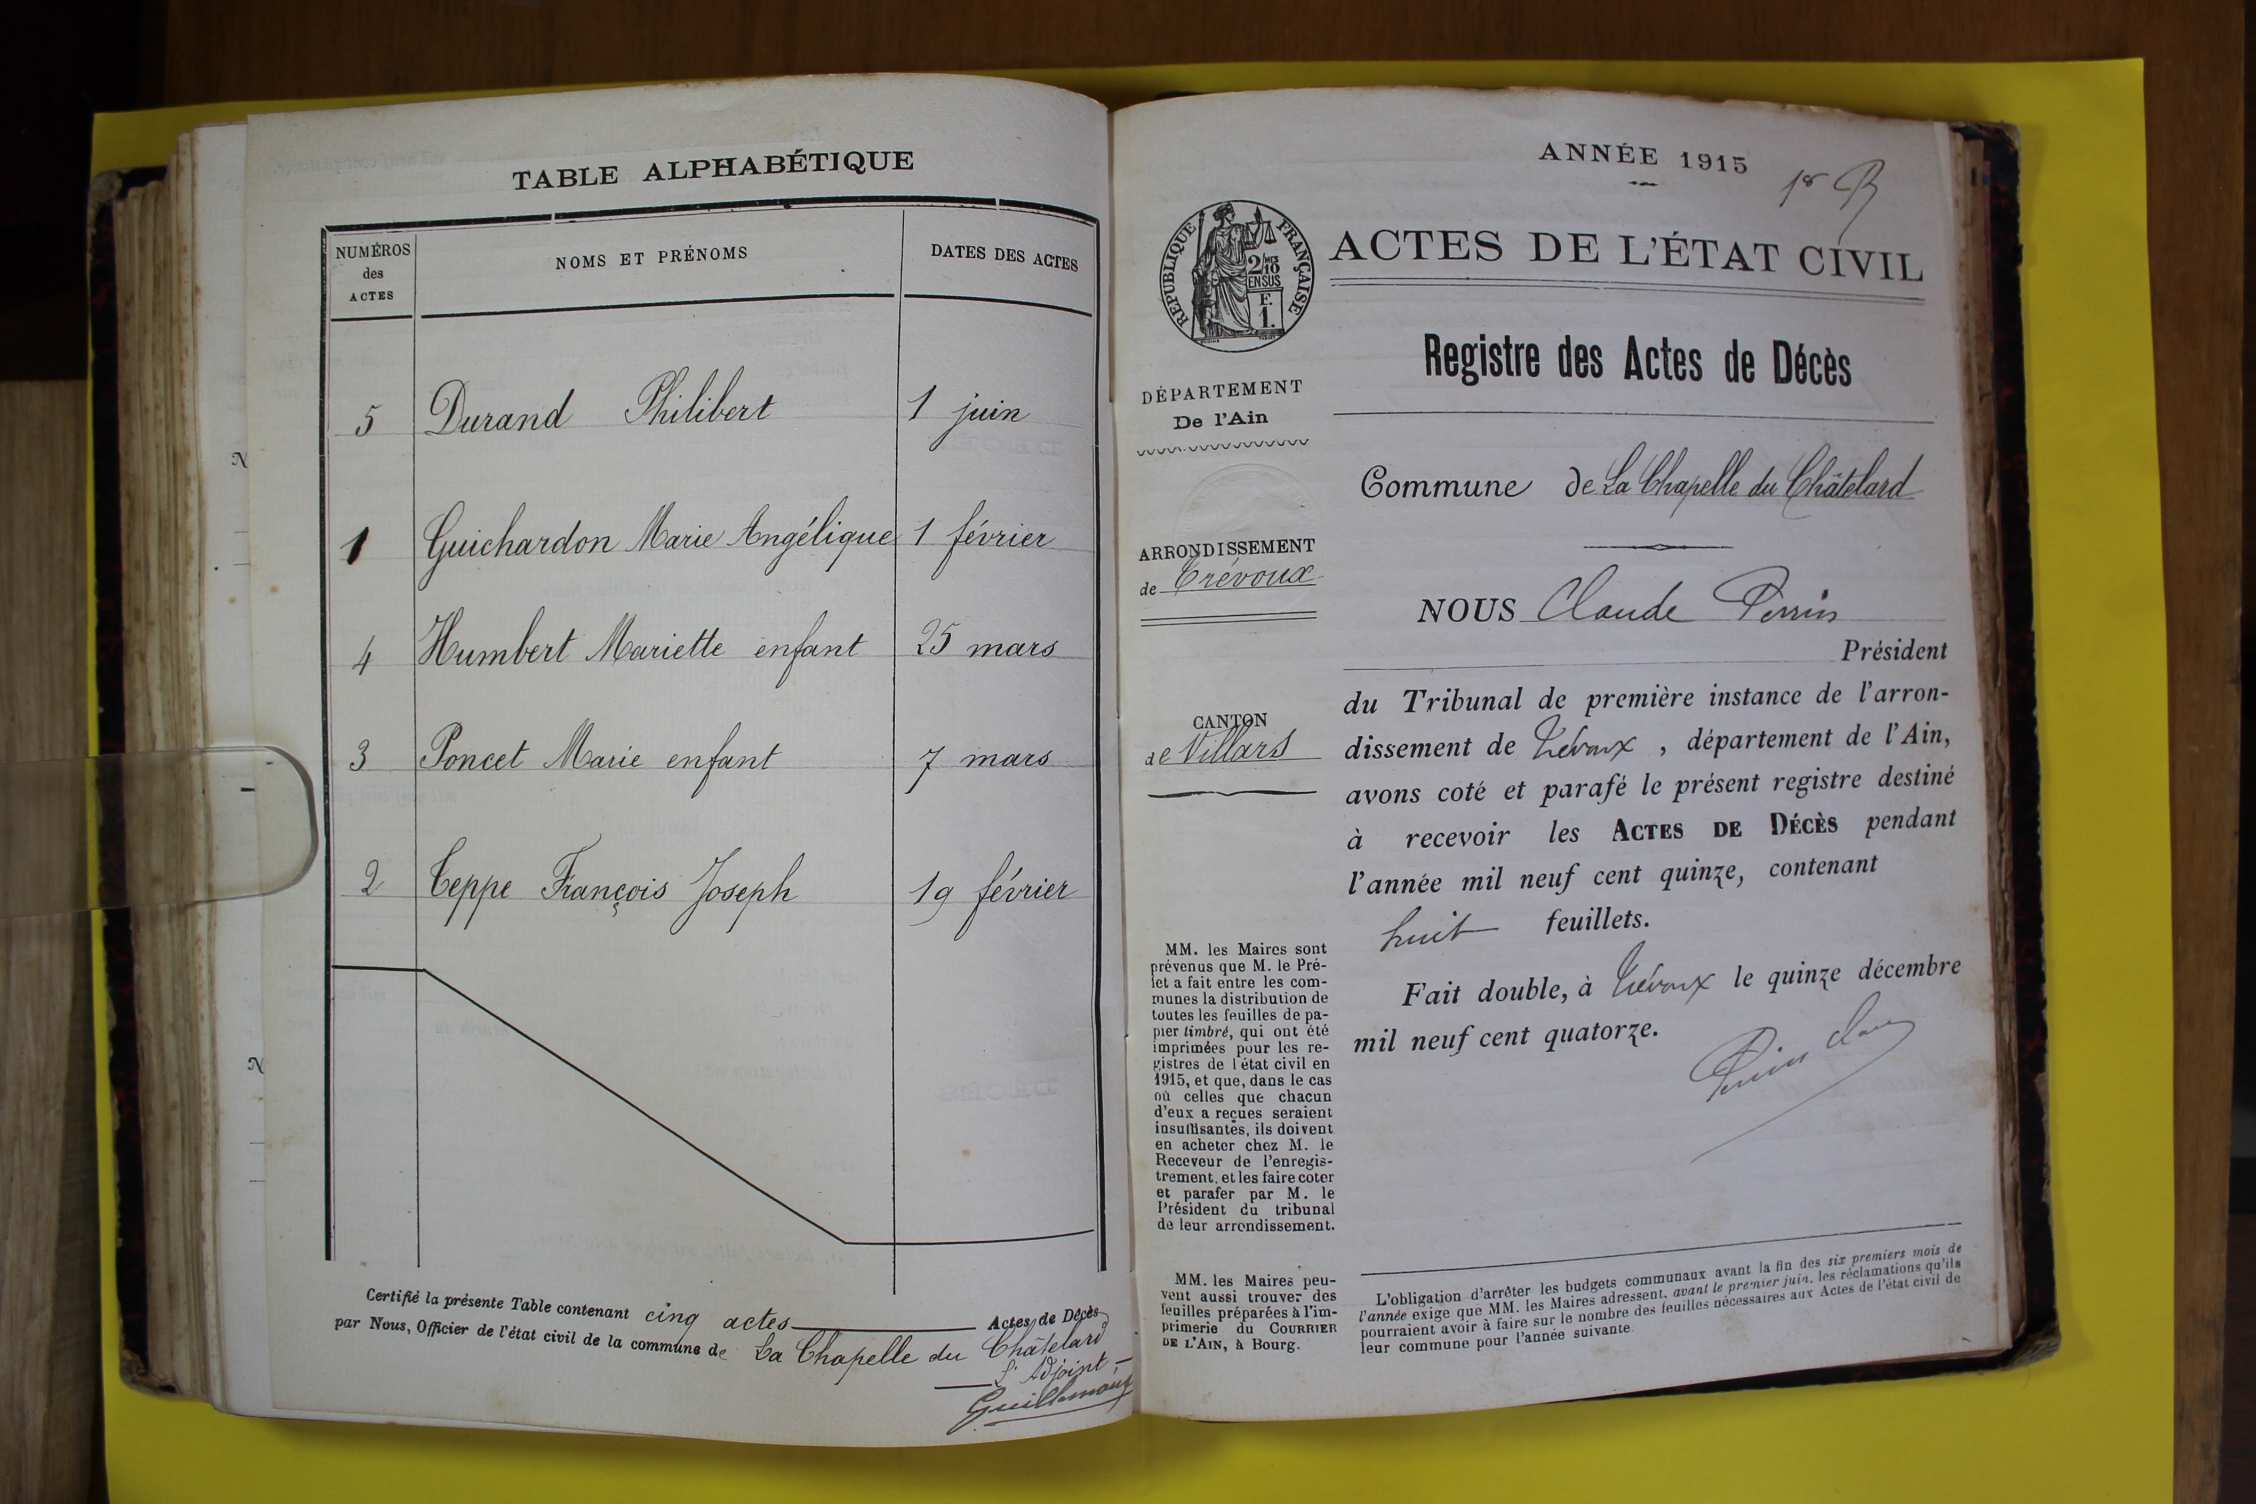 TABLE ALPHABÉTIQUE
NUMÉROS des ACTES
NOMS ET PRÉNOMS
DATES DES ACTES
5 Durand Philibert 1 juin
1 Guichardon Marie Angélique 1 février
4 Humbert Mariette enfant 25 mars
3 Poncet Marie enfant 7 mars
2 Teppe François Joseph 19 février
Certifié la présente Table contenant cinq actes Actes de Décès
par Nous, Officier de l'état civil de la commune de La Chapelle du Châtelard
L'Adjoint,
ANNÉE 1915
RÉPUBLIQUE FRANÇAISE
2/10 EN SUS
F.
1.
ACTES DE L'ÉTAT CIVIL
Registre des Actes de Décès
DÉPARTEMENT
De l'Ain
Commune de La Chapelle du Châtelard
ARRONDISSEMENT
de Trévoux
CANTON
de Villars
NOUS Claude Perrin
Président
du Tribunal de première instance de l'arron-
dissement de Trévoux, département de l'Ain,
avons coté et parafé le présent registre destiné
à recevoir les ACTES DE DÉCÈS pendant
l'année mil neuf cent quinze, contenant
huit feuillets.
Fait double, à Trévoux le quinze décembre
mil neuf cent quatorze.
MM. les Maires sont
prévenus que M. le Pré-
fet a fait entre les com-
munes la distribution de
toutes les feuilles de pa-
pier timbré, qui ont été
imprimées pour les re-
gistres de l'état civil en
1915, et que, dans le cas
où celles que chacun
d'eux a reçues seraient
insuffisantes, ils doivent
en acheter chez M. le
Receveur de l'enregis-
trement, et les faire coter
et parafer par M. le
Président du tribunal
de leur arrondissement.
MM. les Maires peu-
vent aussi trouver des
feuilles préparées à l'im-
primerie du COURRIER
DE L'AIN, à Bourg.
L'obligation d'arrêter les budgets communaux avant la fin des six premiers mois de
l'année exige que MM. les Maires adressent, avant le premier juin, les réclamations qu'ils
pourraient avoir à faire sur le nombre des feuilles nécessaires aux Actes de l'état civil de
leur commune pour l'année suivante.